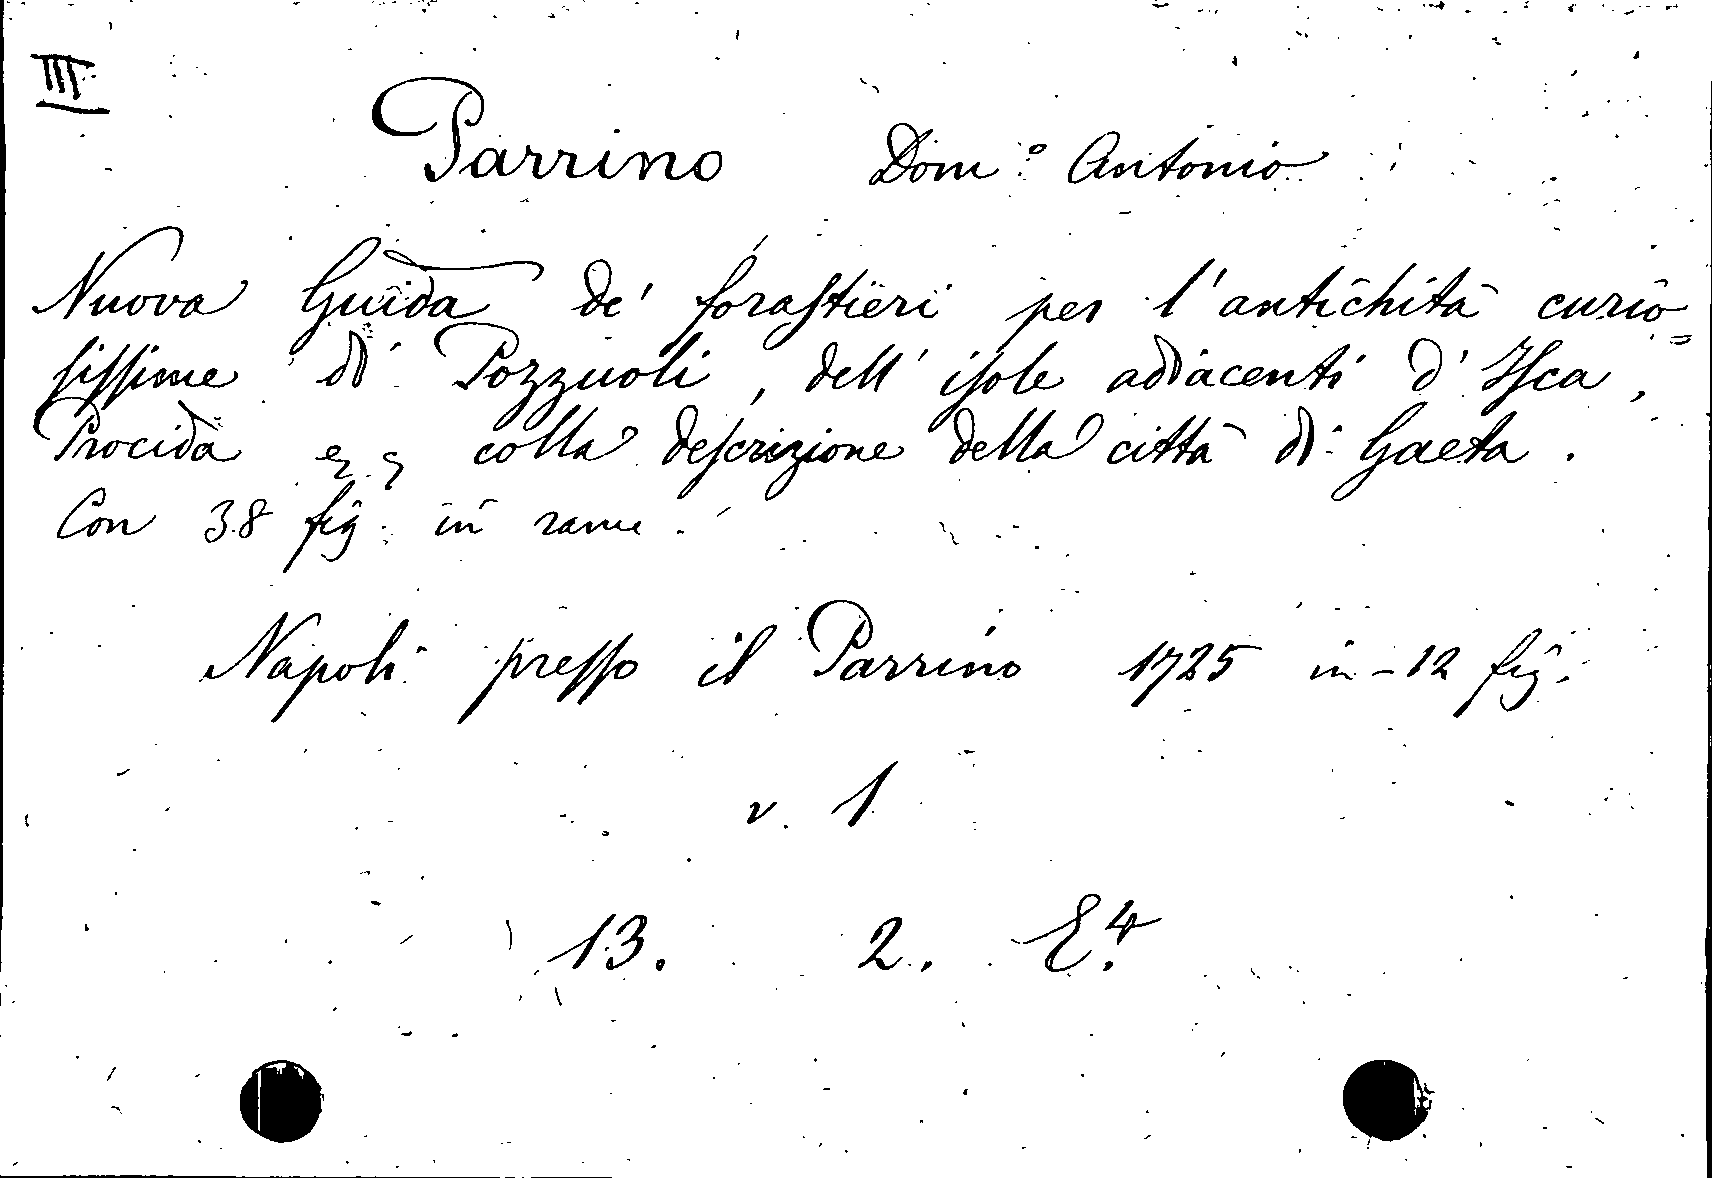 III
Parrino Dom.º Antonio
Nuova Guida de' forastieri per l'antichità curio=
sissime di Pozzuoli, dell'isole adiacenti d'Isca,
Procida colla descrizione della città di Gaeta.
Con 38 fig. in rame.
Napoli presso il Parrino 1725 in-12 fig.
v. 1
13. 2. E.4